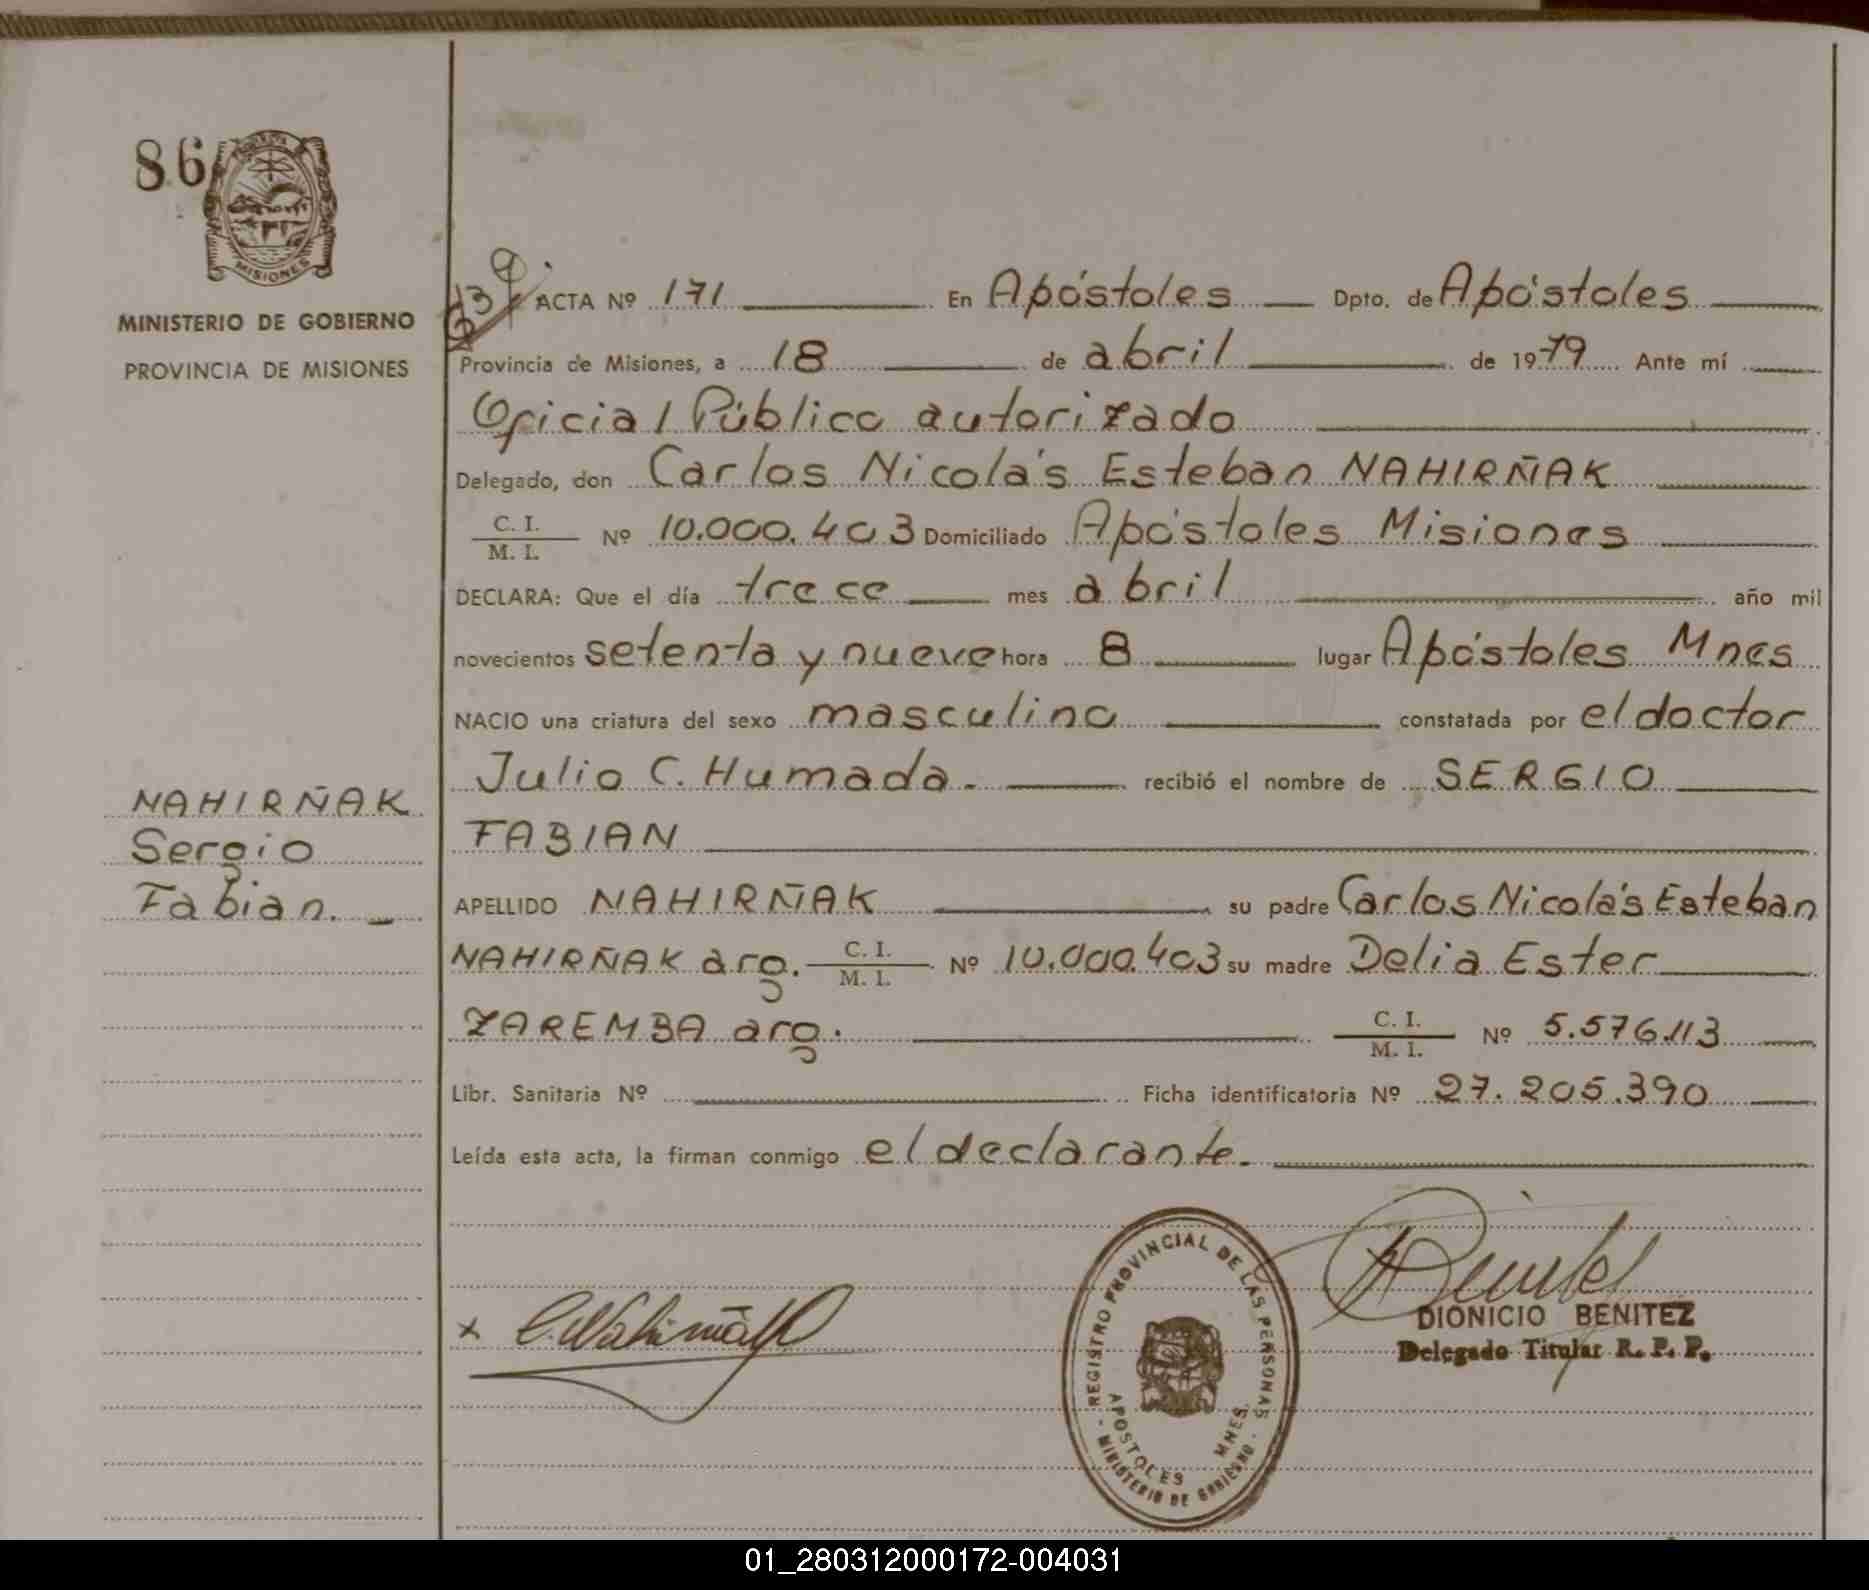 86
MISIONES
MINISTERIO DE GOBIERNO
PROVINCIA DE MISIONES
NAHIRÑAK
Sergio
Fabian. _
ACTA Nº 171 En Apóstoles Dpto. de Apóstoles
Provincia de Misiones, a 18 de abril de 1979 Ante mí
Oficial Público autorizado
Delegado, don Carlos Nicolás Esteban NAHIRÑAK
C. I.
M. I. Nº 10.000.403 Domiciliado Apóstoles Misiones
DECLARA: Que el día trece mes abril año mil
novecientos setenta y nueve hora 8 lugar Apóstoles Mnes
NACIO una criatura del sexo masculino constatada por el doctor
Julio C. Humada. recibió el nombre de SERGIO
FABIAN
APELLIDO NAHIRÑAK su padre Carlos Nicolás Esteban
NAHIRÑAK arg. C. I. M. I. Nº 10.000.403 su madre Delia Ester
ZAREMBA arg. C. I. M. I. Nº 5.576.113
Libr. Sanitaria Nº Ficha identificatoria Nº 27.205.390
Leída esta acta, la firman conmigo el declarante.
x C. Nahirñak
REGISTRO PROVINCIAL DE LAS PERSONAS
APOSTOLES MNES.
- MINISTERIO DE GOBIERNO -
DIONICIO BENITEZ
Delegado Titular R. P. P.
01_280312000172-004031